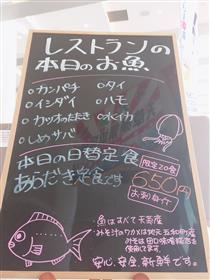 レストランの
本日のお魚
・カンパチ ・タイ
・イシダイ ・ハモ
・カツオのたたき ・水イカ
・しめサバ
本日の日替定食
限定20食
あらだき定食です
650円
お刺身付
・魚はすべて天草産
・みそ汁のワカメは地元 五和町産
みそは 田口味噌醤油を
使用してます。
安心、安全、新鮮です。